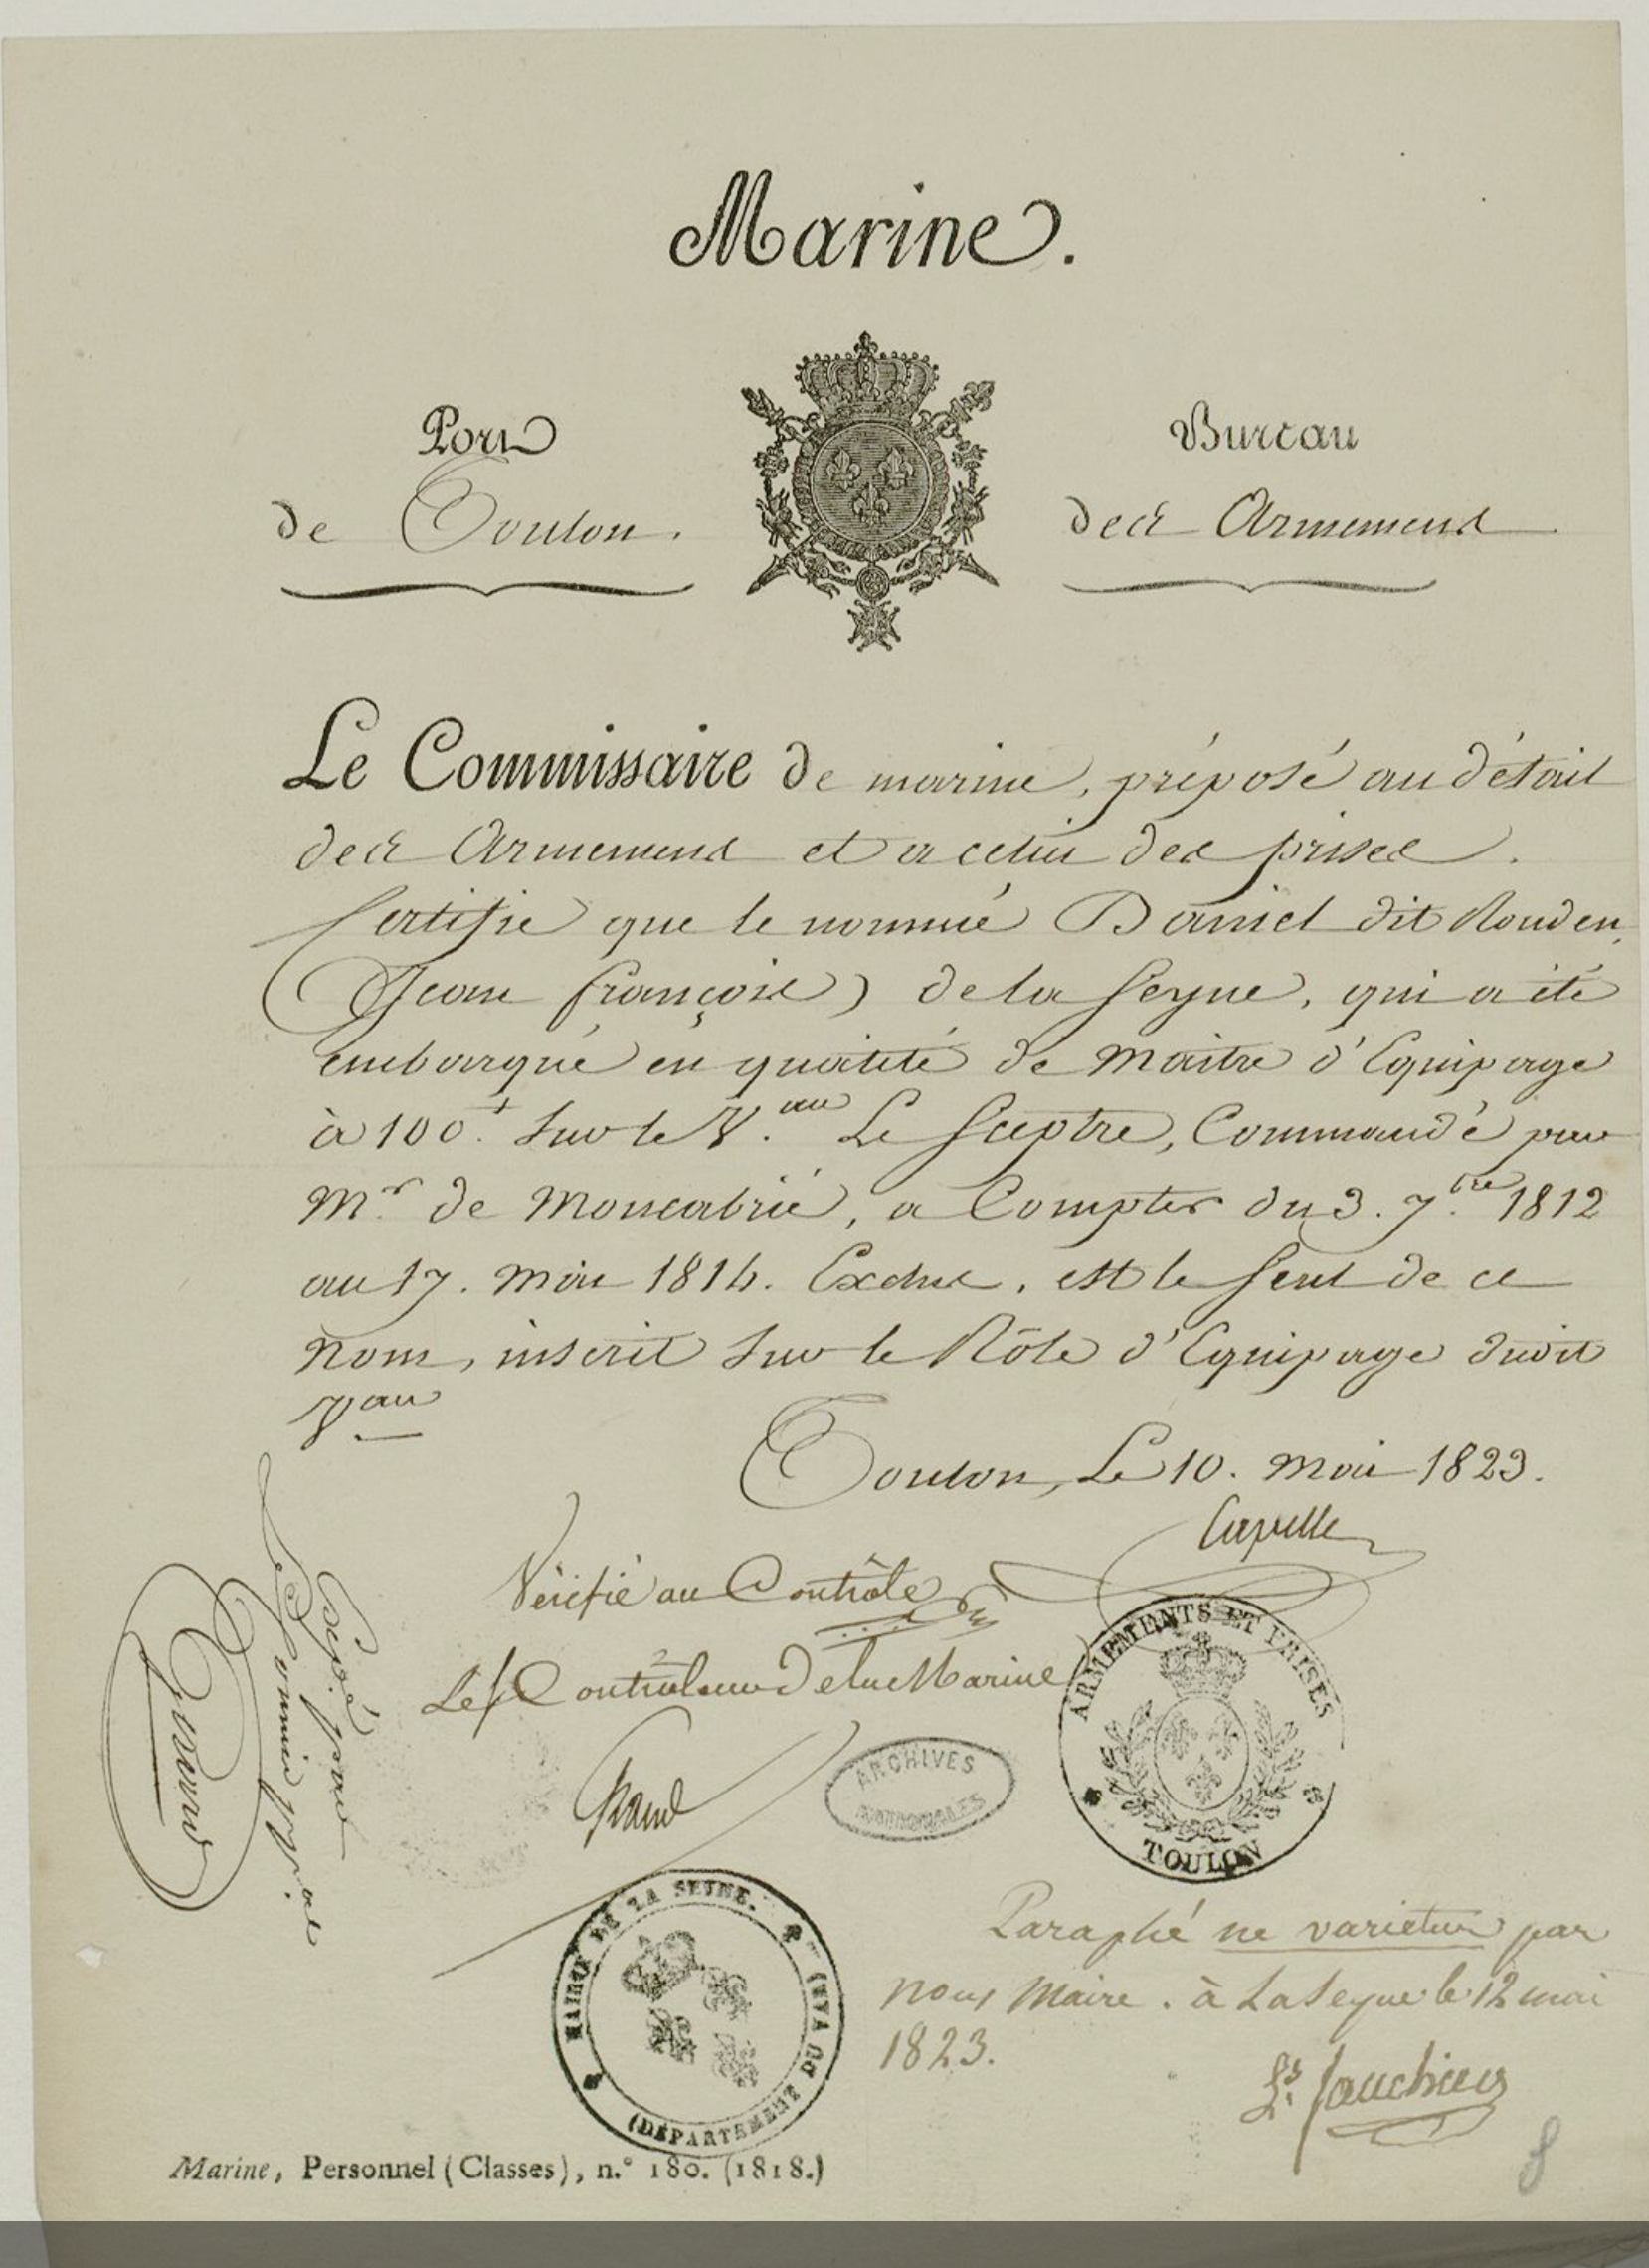 Marine.
Port
de Toulon.
Bureau
des Armemens
Le Commissaire de marine, préposé au détail
des Armemens et a celui des prises.
Certifie que le nommé Daniel dit Rouden,
(Jean françois) de la Seyne, qui a été
embarqué en qualité de Maitre d'Equipage
à 100.ᵗ sur le V.ᵉᵃᵘ Le Sceptre, Commandé par
Mʳ. de Moncabrié, a Compter du 3. 7.ᵇʳᵉ 1812
au 17. mai 1814. Exclus, est le seul de ce
nom, inscrit sur le Rôle d'Equipage dudit
Vᵃᵘ
Toulon, Le 10. mai 1823.
Capelle
Vérifié au Contrôle
Le Contrôleur De la Marine
ARMEMENTS ET PRISES
TOULON
ARCHIVES
NATIONALES
Déposé par
Le Sommié
MAIRIE DE LA SEYNE.
(DÉPARTEMENT DU VAR)
Paraphé ne varietur par
nous Maire. à La Seyne le 12 mai
1823.
Marine, Personnel (Classes), n.° 180. (1818.)
8